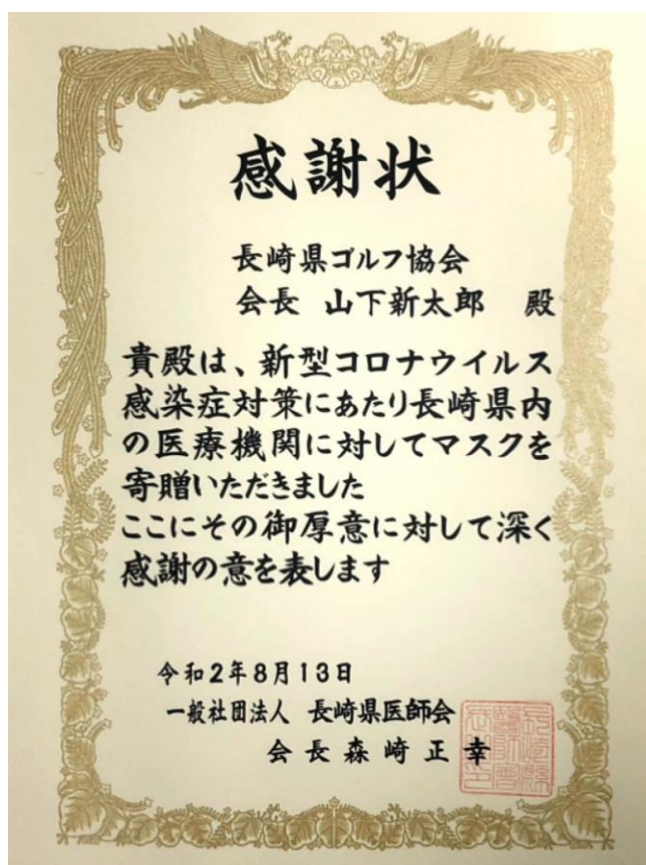 感謝状
長崎県ゴルフ協会
会長 山下新太郎 殿
貴殿は、新型コロナウイルス
感染症対策にあたり長崎県内
の医療機関に対してマスクを
寄贈いただきました
ここにその御厚意に対して深く
感謝の意を表します
令和2年8月13日
一般社団法人 長崎県医師会
会長森崎正幸